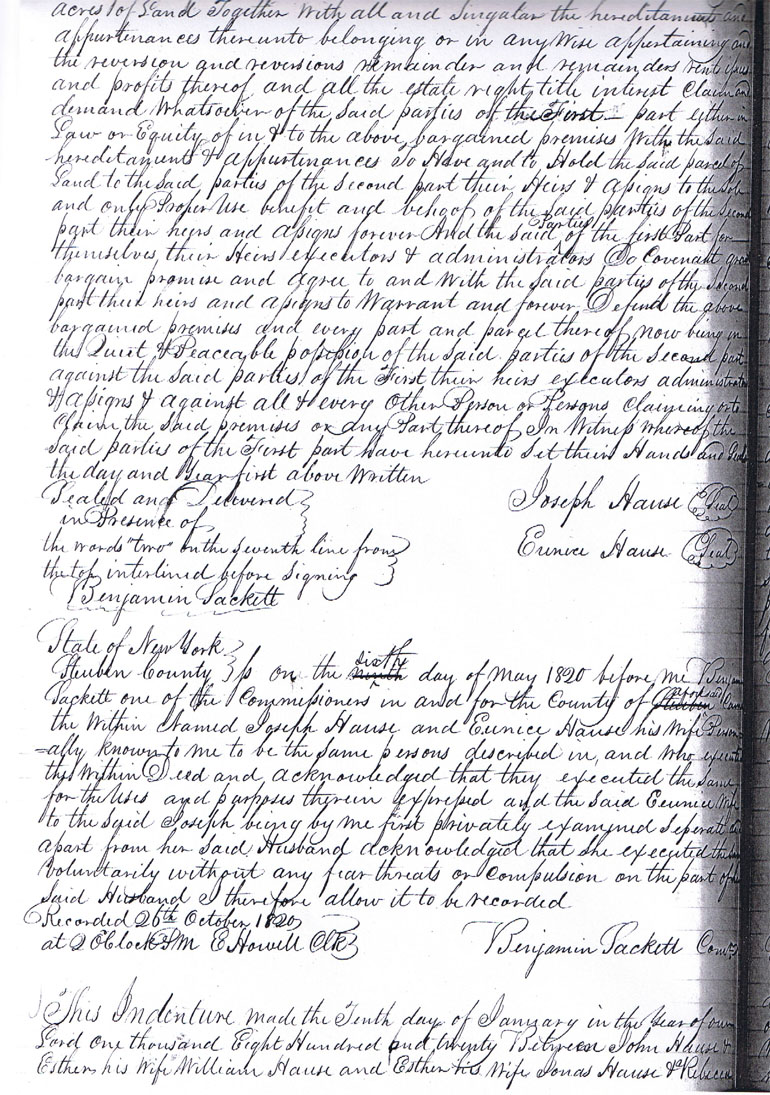 acres of Land Together With all and Singular the hereditaments and
appurtenances thereunto belonging or in any Wise appertaining and
the reversion and reversions remainder and remainders rents issues
and profits thereof and all the estate right title interest Claim and
demand Whatsoever of the Said parties of the First part either in
Law or Equity of in & to the above bargained premises With the Said
hereditaments & appurtenances To Have and to Hold the Said parcel of
Land to the Said parties of the Second part their Heirs & assigns to the Sole
and only Proper Use benefit and behoof of the Said parties of the Second
part their heirs and assigns forever And the Said Parties of the first Part for
themselves, their Heirs executors & administrators Do Covenant grant
bargain promise and agree to and With the Said parties of the Second
part their heirs and assigns to Warrant and forever Defend the above
bargained premises and every part and parcel thereof now being in
the Quiet & Peaceable possession of the Said parties of the Second part
against the Said parties of the First their heirs executors administrators
& assigns & against all & every Other Person or Persons Claiming or to
Claim the Said premises or any Part thereof In Witness Whereof the
Said parties of the First part have hereunto Set their Hands and Seals
the day and Year first above Written
Sealed and Delivered
in Presence of
Joseph Hause Seal
the words "two" on the Seventh line from
Eunice Hause Seal
the top interlined before Signing
Benjamin Sackett
State of New York
Steuben County ss on the ninth sixth day of May 1820 before me Benjamin
Sackett one of the Commissioners in and for the County of Steuben aforesaid Came
the Within Named Joseph Hause and Eunice Hause his Wife Person
=ally known to me to be the Same persons described in, and Who executed
the Within Deed and acknowledged that they executed the Same
for the Uses and purposes therein expressed and the Said Eeunice Wife
to the Said Joseph being by me first privately examined Seperate &
apart from her Said Husband acknowledged that She executed the Same
Voluntarily without any fear threats or Compulsion on the part of
Said Husband I therefore allow it to be recorded
Recorded 26th October 1820
at 2 OClock PM E Howell Clk
Benjamin Sackett Comr
This Indenture made the Tenth day of January in the Year of our
Lord one thousand Eight Hundred and twenty Between John Hause &
Esther his Wife William Hause and Esther his Wife Jonas Hause & Rebecca